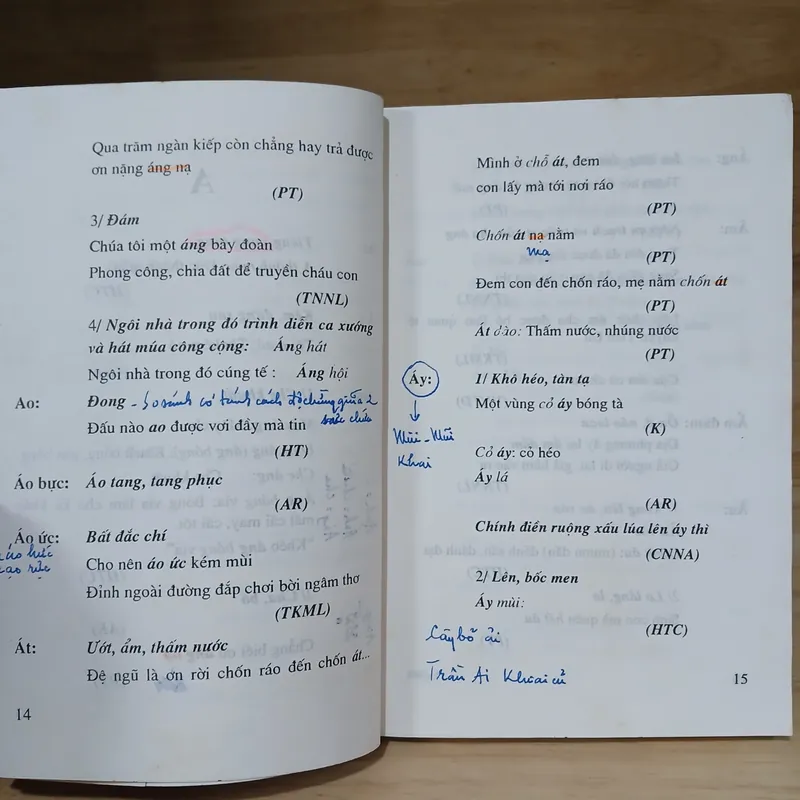 Qua trăm ngàn kiếp còn chẳng hay trả được
ơn nặng áng nạ
(PT)
3/ Đám
Chúa tôi một áng bày đoàn
Phong công, chia đất để truyền cháu con
(TNNL)
4/ Ngôi nhà trong đó trình diễn ca xướng
và hát múa công cộng: Áng hát
Ngôi nhà trong đó cúng tế : Áng hội
Ao: Đong - So sánh có tánh cách
Đấu nào ao được vơi đầy mà tin
(HT)
Áo bực: Áo tang, tang phục
(AR)
Áo ức: Bất đắc chí
Cho nên áo ức kém mùi
Đỉnh ngoài đường đắp chơi bời ngâm thơ
(TKML)
Át: Ướt, ẩm, thấm nước
Đệ ngũ là ơn rời chốn ráo đến chốn át...
14
Mình ở chỗ át, đem
con lấy mà tới nơi ráo
(PT)
Chốn át nạ nằm
mạ
(PT)
Đem con đến chốn ráo, mẹ nằm chốn át
(PT)
Át dào: Thấm nước, nhúng nước
(PT)
Áy: 1/ Khô héo, tàn tạ
Một vùng cỏ áy bóng tà
(K)
Mùi - Mũi
Khai
Cỏ áy: cỏ héo
Áy lá
(AR)
Chính điền ruộng xấu lúa lên áy thì
(CNNA)
2/ Lên, bốc men
Áy mùi:
(HTC)
Cây bồ ải
Trần Ai Khoai củ
15